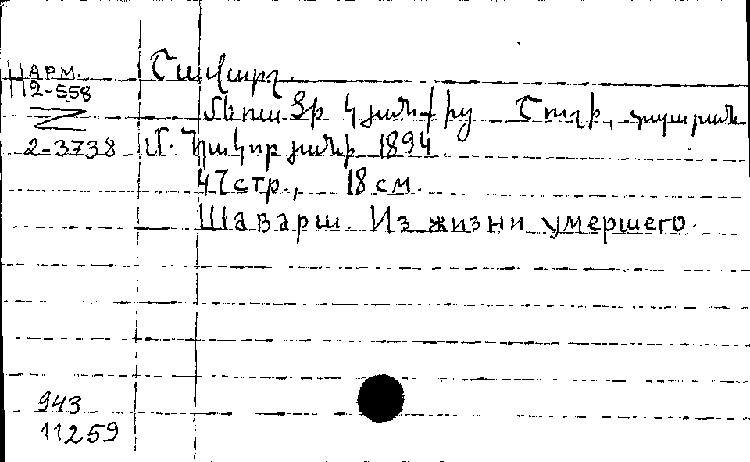 АРМ. Շավարշ.
2-558
Մեռածի կյանքից Շուշի, տպարան
2-3738 Մ. Հակոբյանի 1894
47 стр., 18 см.
Шаварш. Из жизни умершего.
943
11259